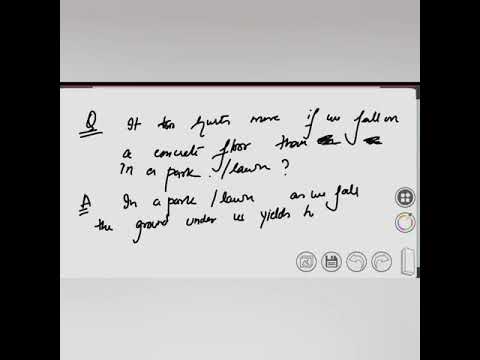 Q It hurts more if we fall on
a concrete floor than
in a park /lawn ?
A In a park /lawn as we fall
the ground under us yields